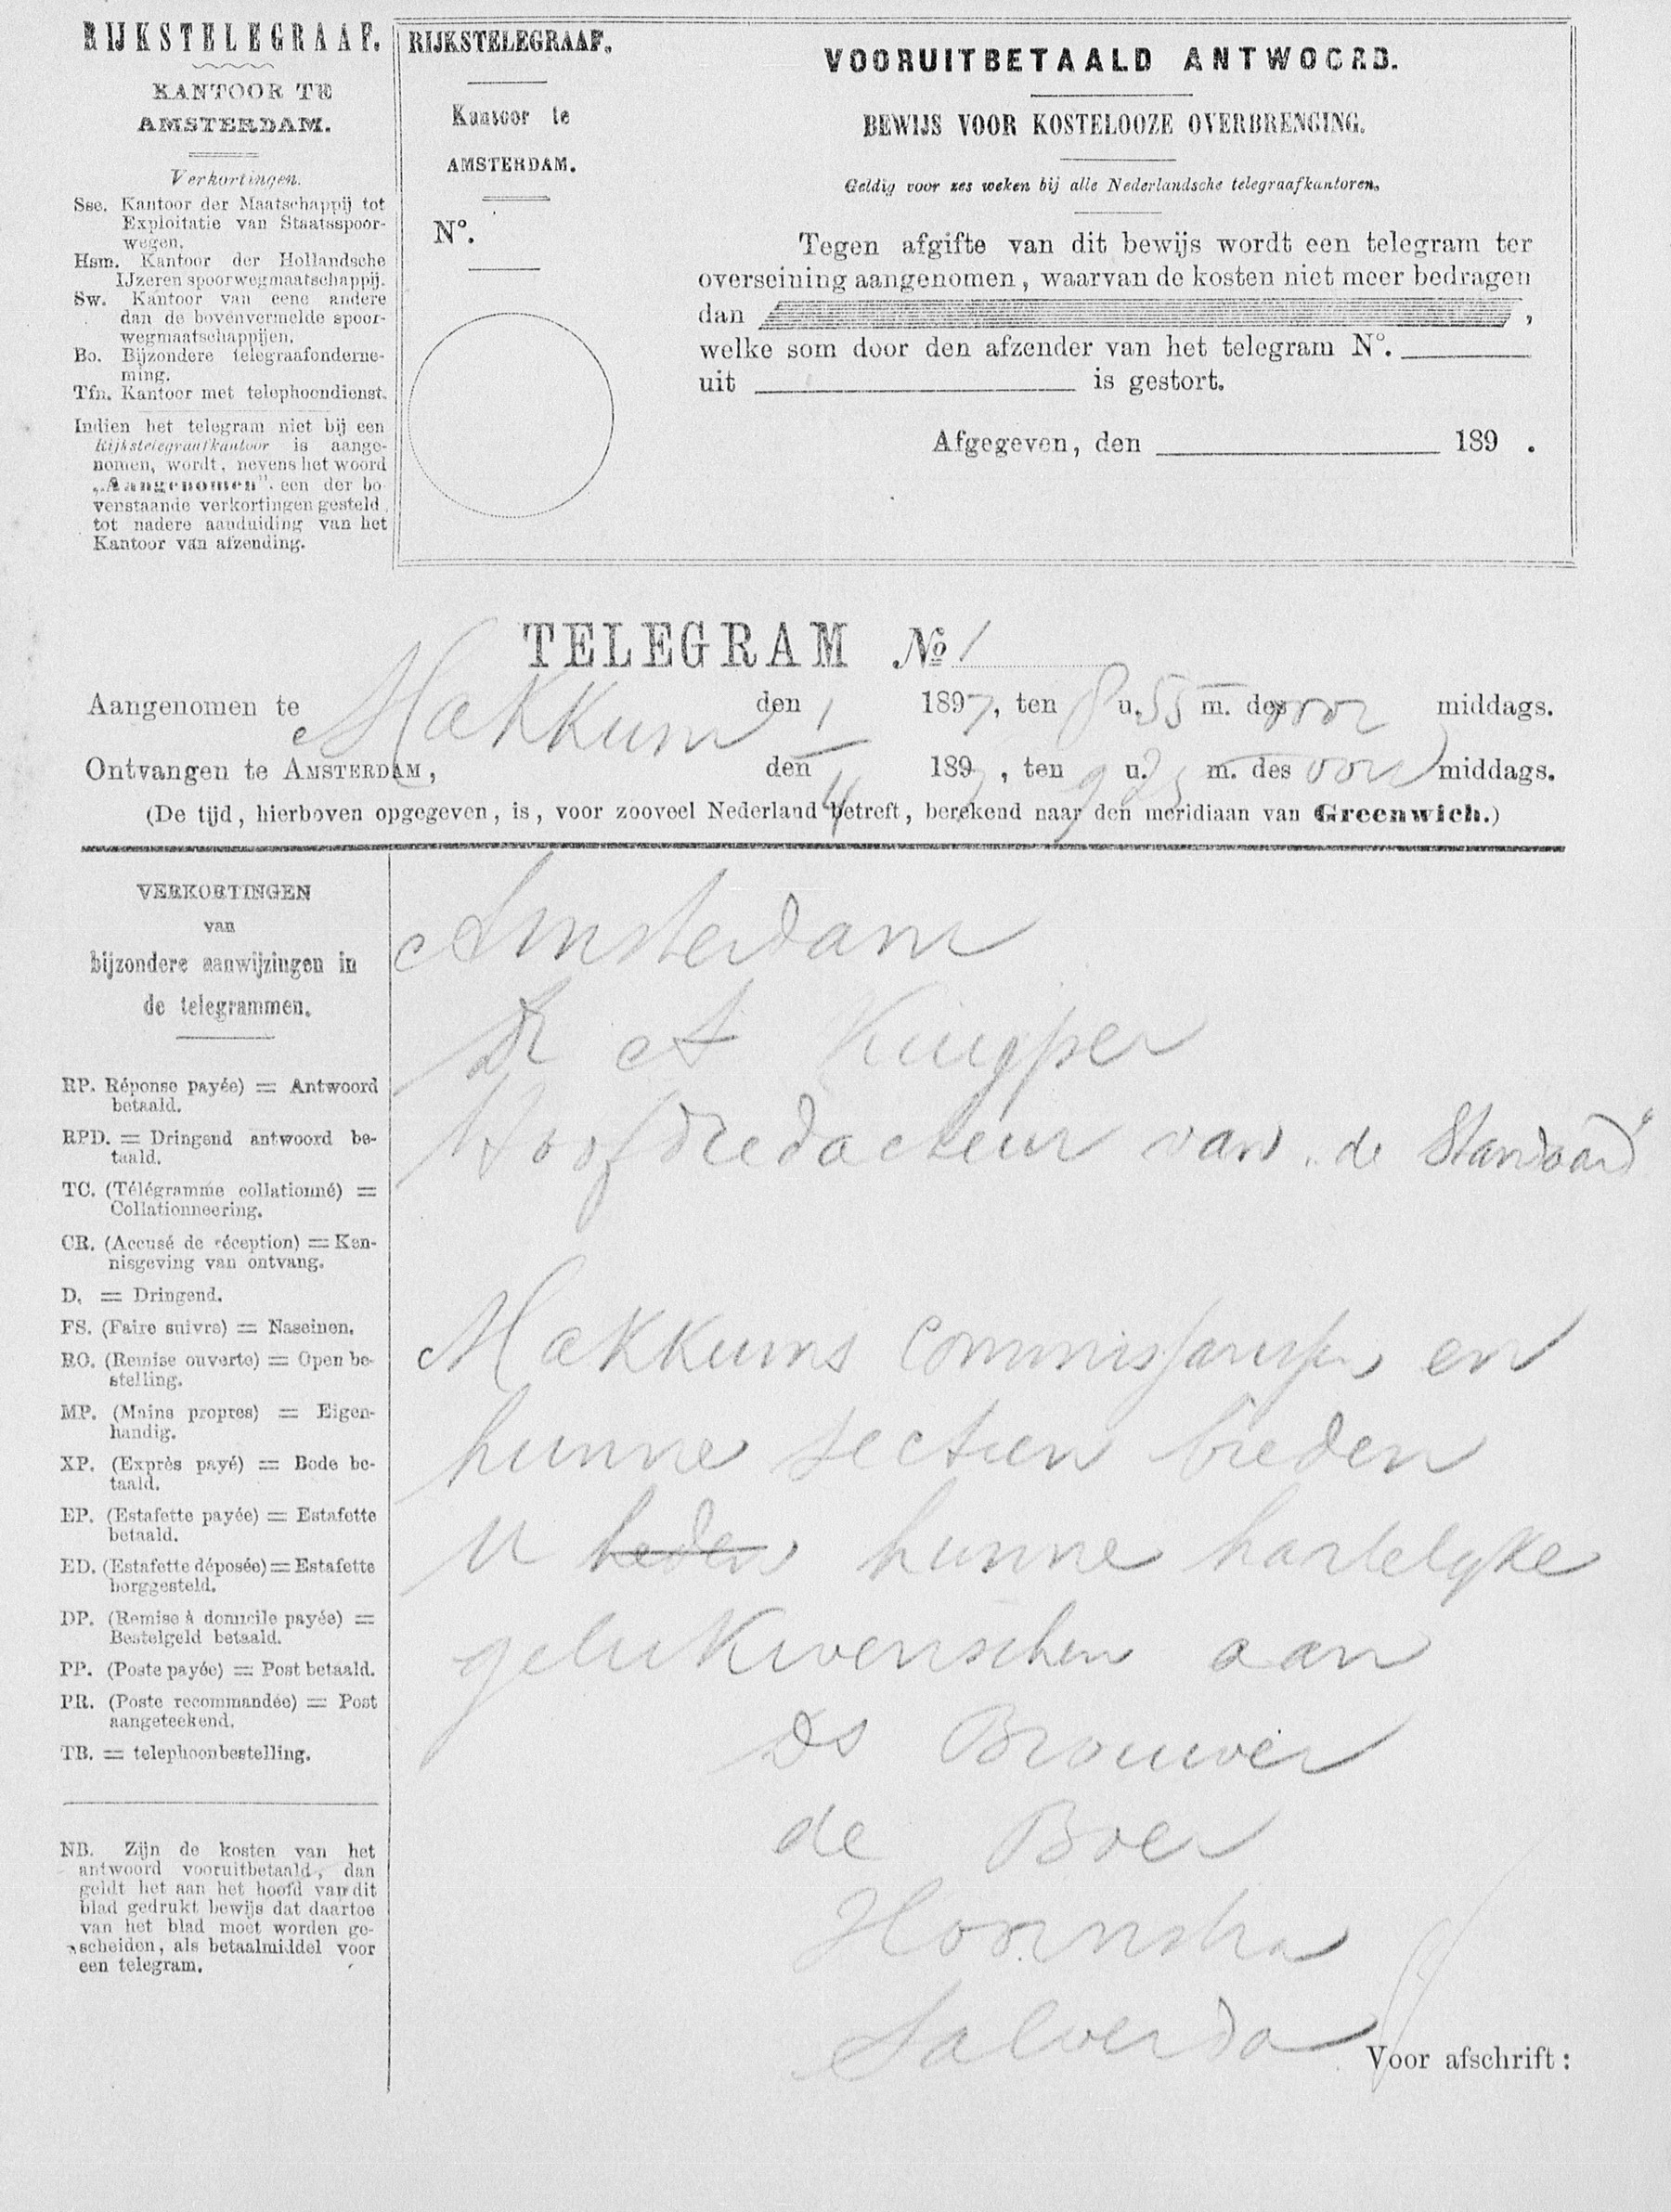 RIJKSTELEGRAAF.
KANTOOR TE
AMSTERDAM.
Verkortingen.
Sse. Kantoor der Maatschappij tot
Exploitatie van Staatsspoor-
wegen.
Hsm. Kantoor der Hollandsche
IJzeren spoorwegmaatschappij.
Sw. Kantoor van eene andere
dan de bovenvermelde spoor-
wegmaatschappijen.
Bo. Bijzondere telegraafonderne-
ming.
Tfn. Kantoor met telephoondienst.
Indien het telegram niet bij een
Rijkstelegraafkantoor is aange-
nomen, wordt, nevens het woord
„Aangenomen" een der bo-
venstaande verkortingen gesteld,
tot nadere aanduiding van het
Kantoor van afzending.
RIJKSTELEGRAAF.
Kantoor te
AMSTERDAM.
N°.
VOORUITBETAALD ANTWOORD.
BEWIJS VOOR KOSTELOOZE OVERBRENGING.
Geldig voor zes weken bij alle Nederlandsche telegraafkantoren.
Tegen afgifte van dit bewijs wordt een telegram ter
overseining aangenomen, waarvan de kosten niet meer bedragen
dan ,
welke som door den afzender van het telegram N°.
uit is gestort.
Afgegeven, den 189 .
TELEGRAM No 1
Aangenomen te Makkum den 1 1897, ten 8 u. 55 m. des voor middags.
Ontvangen te AMSTERDAM, den 4 1897, ten 9 u. m. des voor middags.
(De tijd, hierboven opgegeven, is, voor zooveel Nederland betreft, berekend naar den meridiaan van Greenwich.)
VERKORTINGEN
van
bijzondere aanwijzingen in
de telegrammen.
RP. Réponse payée) = Antwoord
betaald.
RPD. = Dringend antwoord be-
taald.
TC. (Télégramme collationné) =
Collationneering.
CR. (Accusé de réception) = Ken-
nisgeving van ontvang.
D. = Dringend.
FS. (Faire suivre) = Naseinen.
RO. (Remise ouverte) = Open be-
stelling.
MP. (Mains propres) = Eigen-
handig.
XP. (Exprès payé) = Bode be-
taald.
EP. (Estafette payée) = Estafette
betaald.
ED. (Estafette déposée) = Estafette
borggesteld.
DP. (Remise à domicile payée) =
Bestelgeld betaald.
PP. (Poste payée) = Post betaald.
PR. (Poste recommandée) = Post
aangeteekend.
TB. = telephoonbestelling.
NB. Zijn de kosten van het
antwoord vooruitbetaald, dan
geldt het aan het hoofd van dit
blad gedrukt bewijs dat daartoe
van het blad moet worden ge-
scheiden, als betaalmiddel voor
een telegram.
Amsterdam
Dr A Kuyper
Hoofdredacteur van de Standaard"
Makkums Commissarissen en
hunne sectien bieden
U heden hunne hartelyke
gelukwenschen aan
Ds Brouwer
de Boer
Hoornstra
Salverda
Voor afschrift: